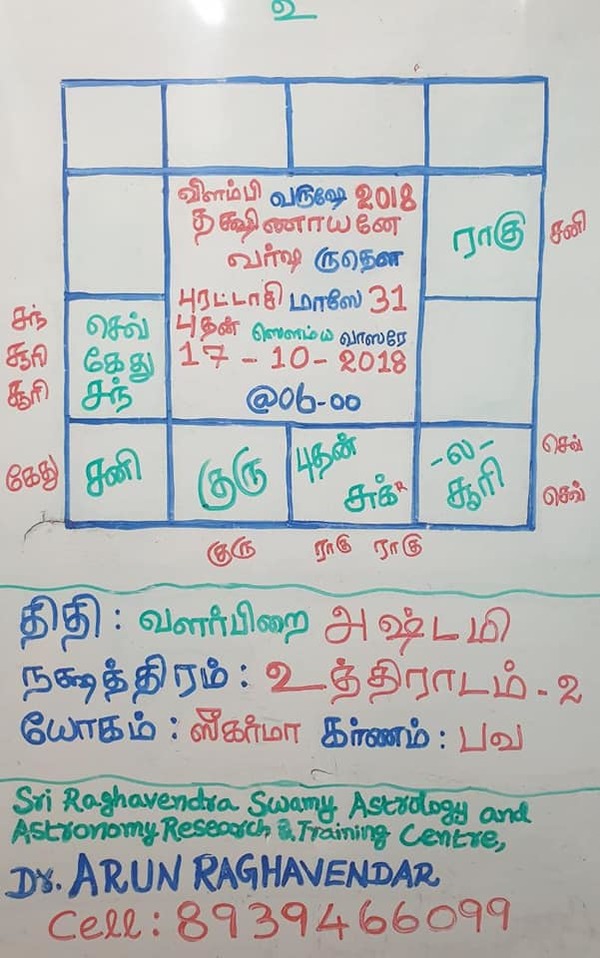 உ
விளம்பி வருஷே 2018
தக்ஷிணாயனே
வர்ஷ ருதௌ
புரட்டாசி மாஸே 31
புதன் ஸௌம்ய வாஸரே
17 - 10 - 2018
@06-00
ராகு சனி
சந் செவ்
சூரி கேது
சூரி சந்
கேது சனி குரு புதன் -ல- செவ்
சுக் R சூரி செவ்
குரு ராகு ராகு
திதி : வளர்பிறை அஷ்டமி
நக்ஷத்திரம் : உத்திராடம் - 2
யோகம் : ஸீகர்மா கர்ணம் : பவ
Sri Raghavendra Swamy Astrology and
Astronomy Research & Training Centre,
Dr. ARUN RAGHAVENDAR
Cell : 8939466099